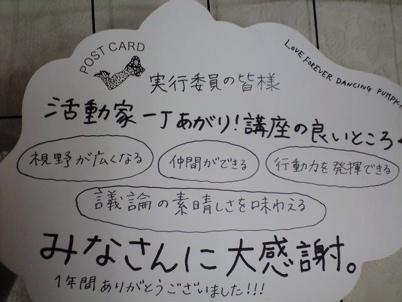 POST CARD
LOVE FOREVER DANCING PUMPK
実行委員の皆様
活動家一丁あがり!講座の良いところ
視野が広くなる 仲間ができる 行動力を発揮できる
議論の素晴しさを味わえる
みなさんに大感謝。
1年間ありがとうございました!!!